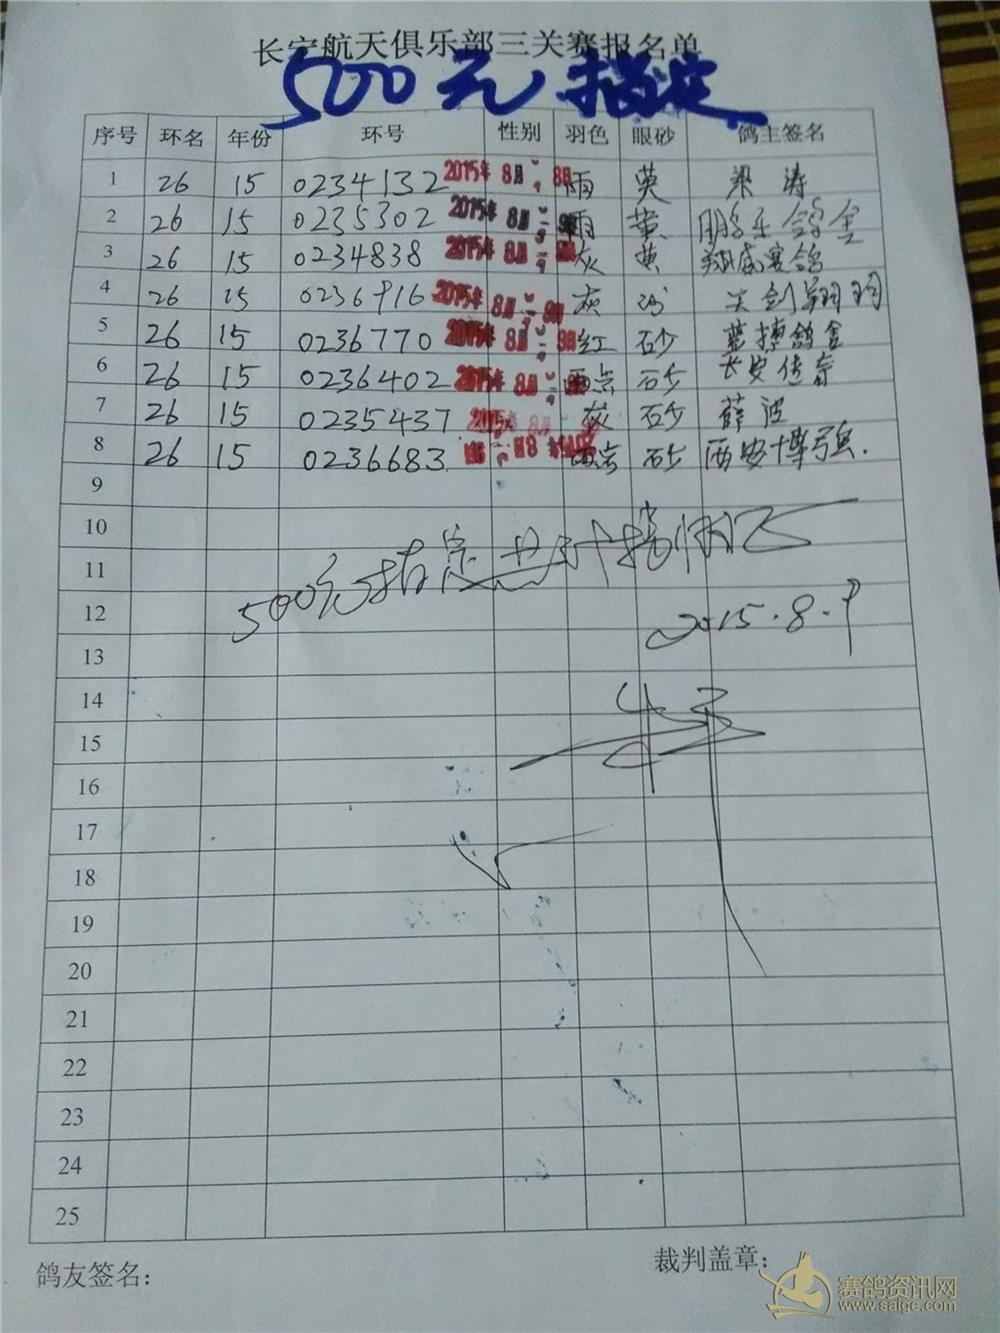 长安航天俱乐部三关赛报名单
500元 指定
序号 环名 年份 环号 性别 羽色 眼砂 鸽主签名
1 26 15 0234132 2015年 8月 8日 雨 黄 梁涛
2 26 15 0235302 2015年 8月 雨 黄 鹏乐鸽舍
3 26 15 0234838 2015年 8月 灰 黄 翔威赛鸽
4 26 15 0236916 2015年 8月 9日 灰 沙
5 26 15 0236770 2015年 8月 9日 红 砂 蓝搏鸽舍
6 26 15 0236402 2015年 8月 雨点 砂 长安传奇
7 26 15 0235437 2015年 8月 灰 砂 薛波
8 26 15 0236683. 雨点 砂 西安博强.
9
10
11
500元指定共计捌羽
12
2015.8.9
13
14
15
16
17
18
19
20
21
22
23
24
25
鸽友签名：
裁判盖章：
赛鸽资讯网
www.saige.com